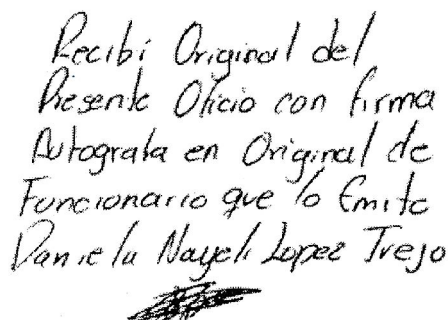 Recibi Original del
Presente Oficio con firma
Autografa en Original de
Funcionario que lo Emite
Daniela Nayeli Lopez Trejo